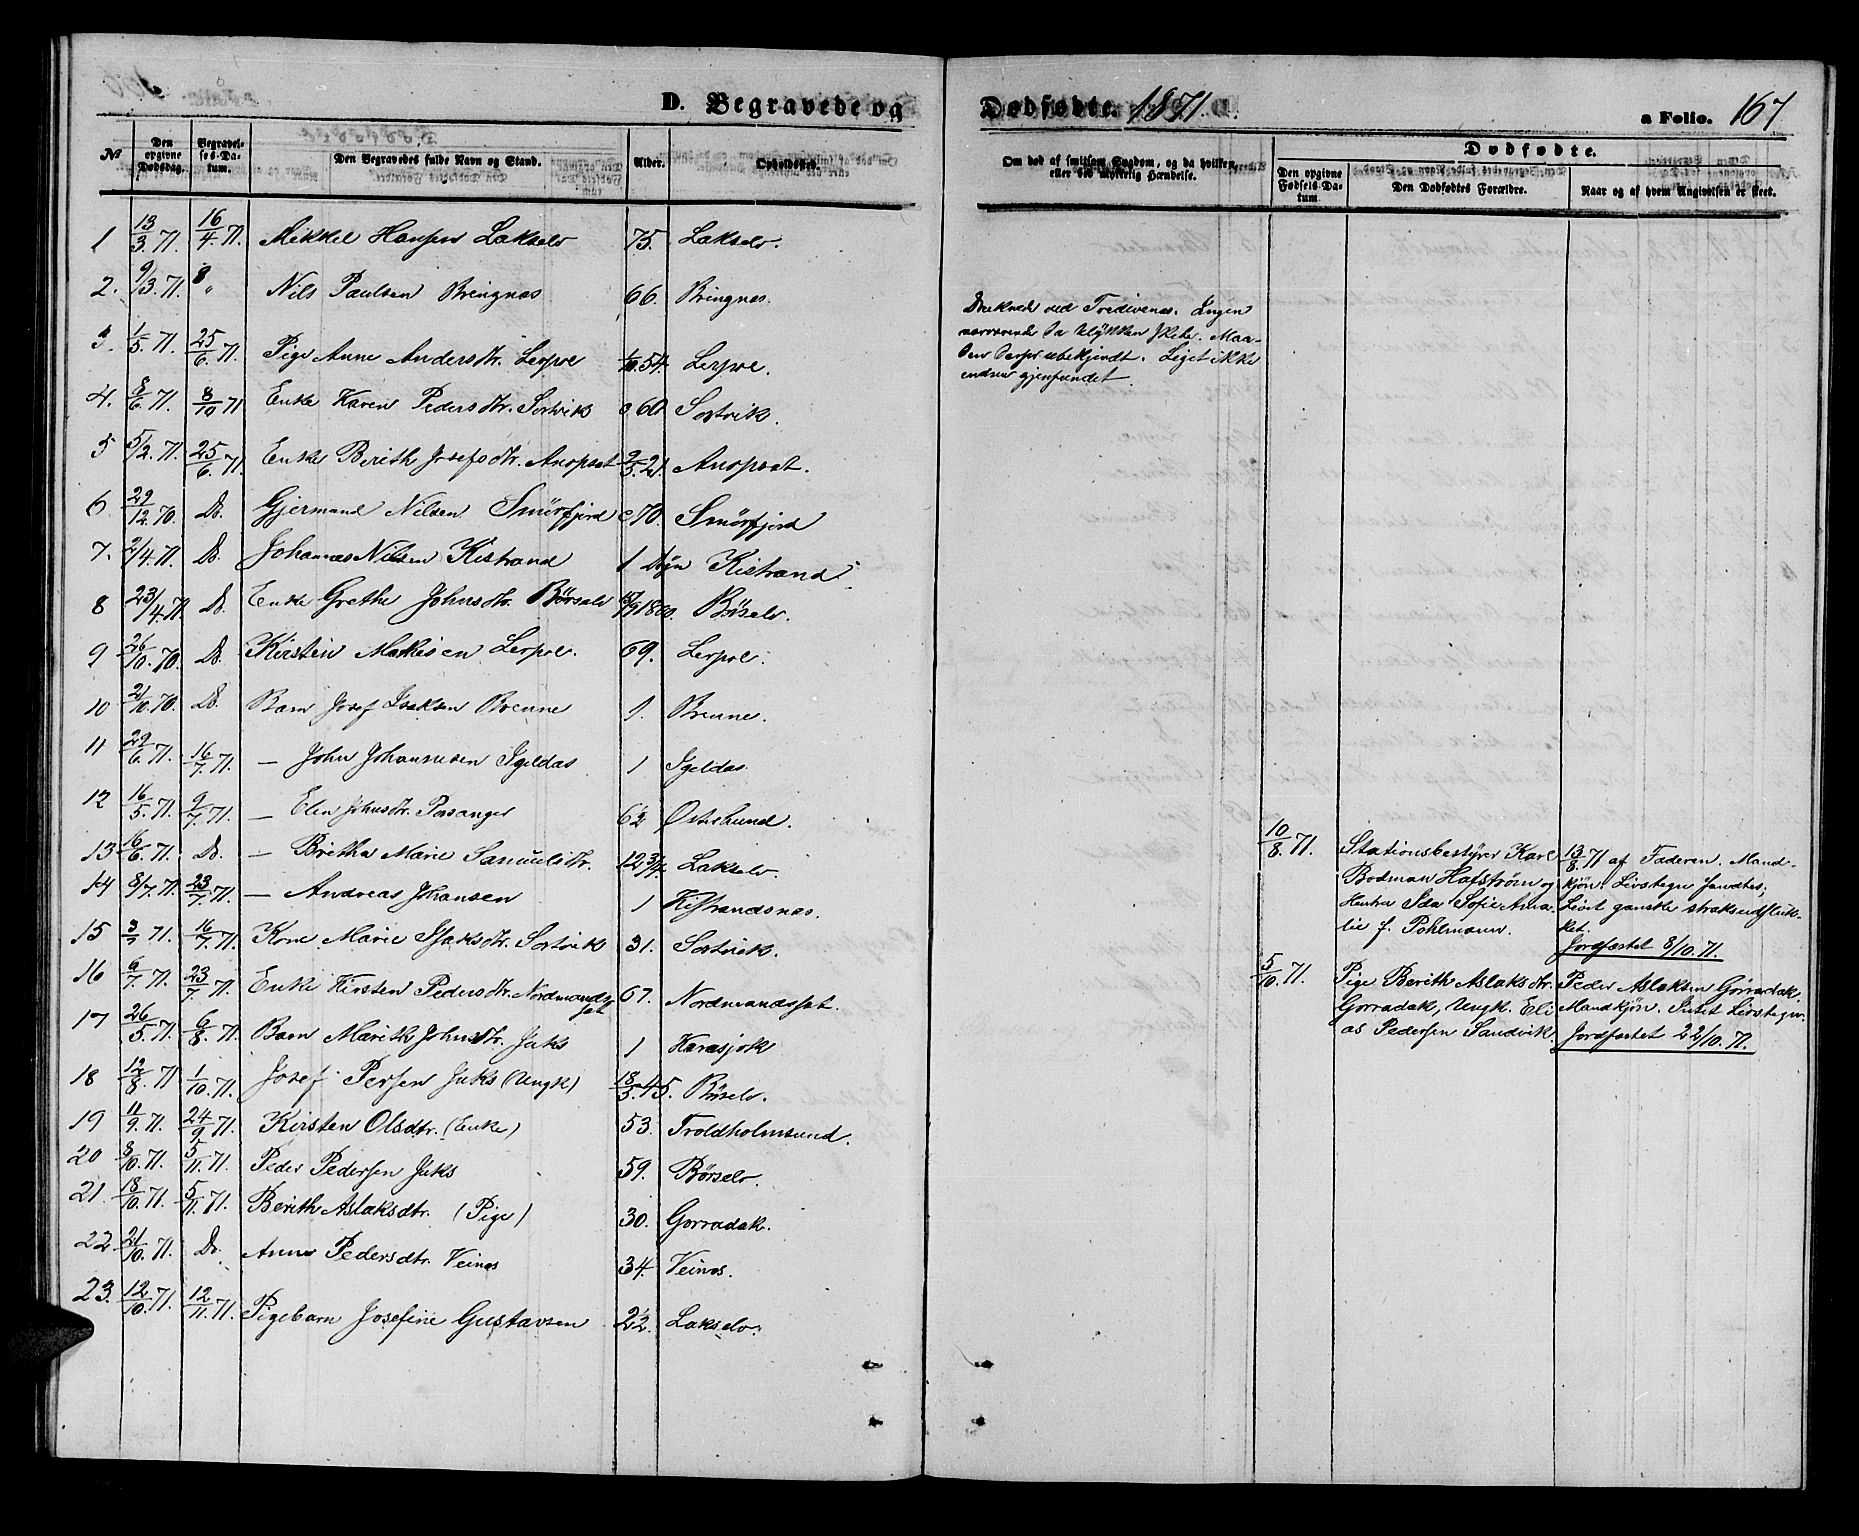 D. Begravede og Dødfødte. 1871. a Folio. 167
№ Den opgivne Dødsdag. Begravelses-Datum. Den Begravedes fulde Navn og Stand. Alder. Opholdssted. Om død af smitsom Sygdom, og da hvilken, eller ved ulykkelig Hændelse. Dødfødte. Den opgivne Fødsels-Datum Den Dødfødtes Forældre. Naar og af hvem Angivelsen er skeet.
1 13/3.71. 16/4.71. Mikkel Hansen Lakselv 75. Lakselv.
2. 9/3.71. 8 " Nils Paulsen Bringnæs 66. Bringnæs.
Druknede ved Tredivenæs. Ingen
nærværende da Ulykken skede. Maa-
den derfor ubekjendt. Liget ikke
endnu gjenfundet.
3. 1/5.71. 25/6.71. Pige Anne Andersdtr. Lerpol 1/10.54. Lerpol.
4. 8/6.71. 8/10 71 Enke Karen Pedersdtr. Sortvik c 60. Sortvik.
5 5/2.71. 25/6.71. Enke Berith Josefsdtr. Anopset 2/3.21. Anopset.
6 29/12.70. Do. Gjermand Nilsen Smörfjord c 70. Smörfjord
7. 2/4.71. Do. Johannes Nilsen Kistrand 1 Døgn Kistrand.
8 23/4.71. Do. Enke Grethe Johnsdtr. Börselv 15/9 1800. Börselv.
9 26/10.70. Do. Kirsten Mathisen Lerpol. 69. Lerpol.
10 21/10.70. Do. Barn Josef Isaksen Brenne 1. Brenne.
11 29/6.71. 16/7.71. — John Johannesen Igeldas 1 Igeldas.
12 16/5.71. 9/7.71. — Elen Johnsdtr. Porsanger 6½ Østerbund.
13 16/6.71. Do. — Britha Marie Samuelsdtr. 12 3/4. Lakselv.
14 8/7.71. 23/7.71. — Andreas Johansen 1 Kistrandsnæs.
15 3/7 71. 16/7.71. Kone Marie Isaksdtr. Sortvik 31. Sortvik.
16 6/7.71. 23/7.71. Enke Kirsten Pedersdtr. Nordmands- 67. Nordmandsset.
set
17 26/5.71. 6/8.71. Barn Marith Johnsdtr. Juks 1 Karasjok
18 12/8.71 1/10.71. Josef Persen Juks (Ungk) 18/3.45. Börselv.
19 11/9.71. 24/9 71. Kirsten Olsdtr. (Enke) 53. Troldholmsund.
20 8/10.71. 5/11.71. Peder Pedersen Juks 59. Börselv.
21. 18/10.71. 5/11.71. Berith Aslaksdtr. (Pige) 30. Gorradak.
22 21/10.71. Do. Anne Pedersdtr. Veinæs 34. Veinæs.
23. 12/10.71. 12/11.71. Pigebarn Josefine Gustavsen 2½. Lakselv.
10/8.71. Stationsbestyrer Karl
Bodman Hafström og
Hustru Ida Sofie Ama-
lie f. Pohlmann.
13/8.71 af Faderen. Mand-
kjön. Livstegn fandtes;
Livet ganske straks udsluk-
ket.
Jordfæstet 8/10.71.
5/10.71. Pige Berith Aslaksdtr.
Gorradak, Ungk. Eli-
as Pedersen Sandvik.
Peder Aslaksen Gorradak.
Mandkjön. Intet Livstegn.
Jordfæstet 22/10.71.